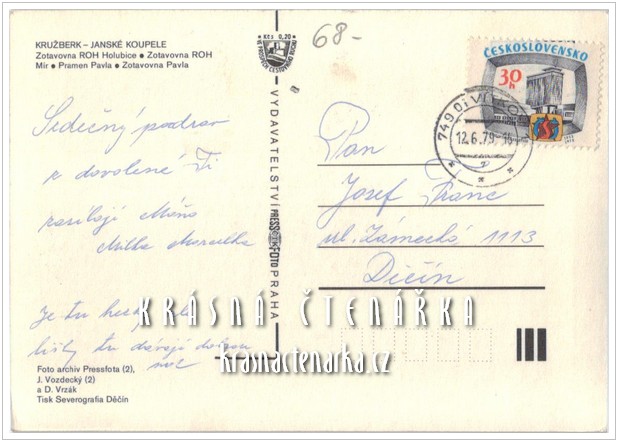 KRUŽBERK – JANSKÉ KOUPELE
Zotavovna ROH Holubice ● Zotavovna ROH
Mír ● Pramen Pavla ● Zotavovna Pavla
Srdečný pozdrav
z dovolené Ti
zasílají Máňa
Milka
Je tu hezky
lidi tu dávají
moc
Foto archiv Pressfota (2),
J. Vozdecký (2)
a D. Vrzák
Tisk Severografia Děčín
Kčs 0,20
VYDAVATELSTVÍ PRESSFOTO PRAHA
68-
ČESKOSLOVENSKO
30h
749 01 VÍTKOV
12.6.79
Pan
Josef Franc
ul. Zámecká 1113
Děčín
KRÁSNÁ ČTENÁŘKA
krasnactenarka.cz